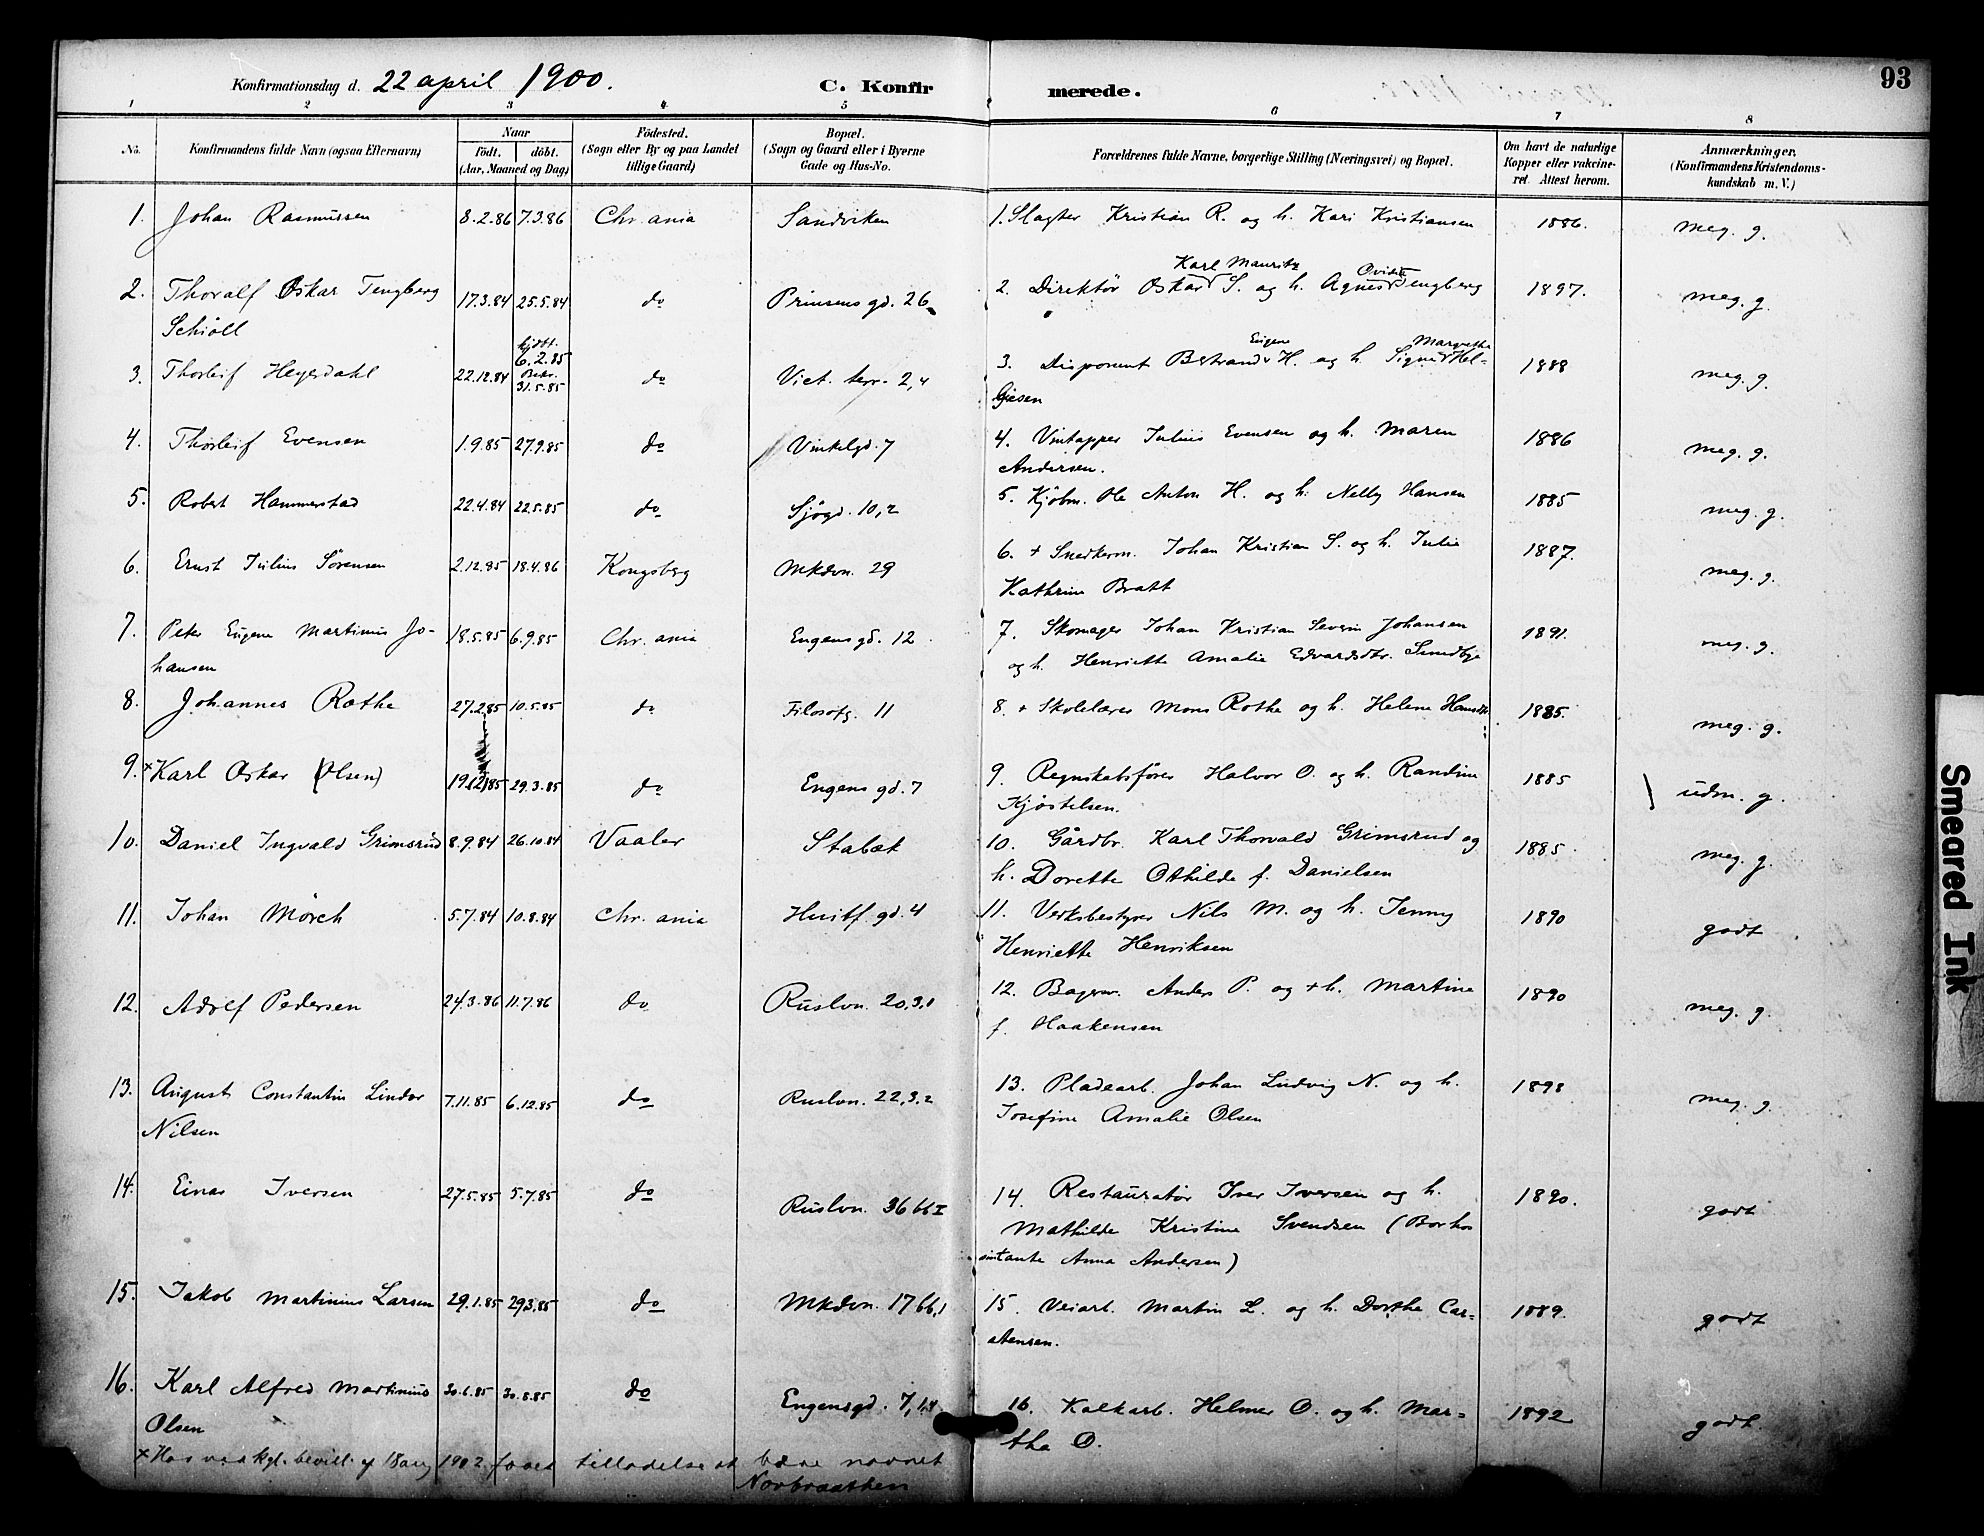 Konfirmationsdag d. 22 april 1900. C. Konfirmerede. 93
1 2 3 4 5 6 7 8
No. Konfirmandens fulde Navn (ogsaa Efternavn) Naar født. døbt. (Aar, Maaned og Dag) Fødested. (Sogn eller By og paa Landet tillige Gaard) Bopæl. (Sogn og Gaard eller i Byerne Gade og Hus-No. Forældrenes fulde Navne, borgerlige Stilling (Næringsvei) og Bopæl. Om havt de naturlige Kopper eller vakcineret. Attest herom. Anmærkninger. (Konfirmandens Kristendomskundskab m. V.)
1. Johan Rasmussen 8.2.86 7.3.86 Chr.ania Sandviken 1. Slagter Kristian R. og h. Kari Kristiansen 1886. meg. g.
Karl Mauritz Ovidia
2. Thoralf Oskar Tengberg 17.3.84 25.5.84 do Prinsens gd. 26 2. Direktør Oskar S. og h. Agnes Tengberg 1897. meg. g.
Schiöll
hjdbt. 6.2.85 Eugene Margrethe
3. Thorleif Heyerdahl 22.12.84 Bekr. 31.5.85 do Vict. terr. 2,4 3. Disponent Bertrand H. og h. Signe Hel-
giesen 1888 meg. g.
4. Thorleif Evensen 1.9.85 27.9.85 do Vinkelgd. 7 4. Vintapper Julius Evensen og h. Maren 1886 meg. g.
Andersen.
5. Robert Hammerstad 22.4.84 22.5.85 do Sjøgd. 10,2 5. Kjøbm. Ole Anton H. og h. Nelly Hansen 1885 meg. g.
6. Ernst Julius Sørensen 2.12.85 18.4.86 Kongsberg Mkdvn. 29 6. + Snedkerm. Johan Kristian S. og h. Julie 1887. meg. g.
Kathrine Bratt
7. Peter Eugene Martinius Jo- 18.5.85 6.9.85 Chr.ania Engens gd. 12 7. Skomager Johan Kristian Severin Johansen 1891. meg. g.
hansen og h. Henriette Amalie Edvardsdtr. Smedbye
8. Johannes Rothe 27.2.85 10.5.85 do Filosofg. 11 8. + Skolelærer Mons Rothe og h. Helene Hansdtr. 1885. meg. g.
9. + Karl Oskar (Olsen) 19.(2)85 29.3.85 do Engens gd. 7 9. Regnskabsfører Halvor O. og h. Randine 1885 udm. g.
Kjøstelsen.
10. Daniel Ingvald Grimsrud 8.9.84 26.10.84 Vaaler Stabæk 10. Gårdbr. Karl Thorvald Grimsrud og 1885. meg. g.
h. Dorette Othilde f. Danielsen
11. Johan Mörch 5.7.84 10.8.84 Chr.ania Huitf. gd. 4 11. Verksbestyrer Nils M. og h. Jenny 1890 godt
Henriette Henriksen
12. Adolf Pedersen 24.3.86 11.7.86 do Ruslvn. 20,3,1 12. Bagersv. Anders P. og + h. Martine 1890 meg. g.
f. Haakensen
13. August Constantin Lindor 7.11.85 6.12.85 do Ruslvn. 22,3,2 13. Pladearb. Johan Ludvig N. og h. 1898 meg. g.
Nilsen Josefine Amalie Olsen
14. Einar Iversen 27.5.85 5.7.85 do Ruslvn. 36 bb I 14. Restauratør Iver Iversen og h. 1890. godt
Mathilde Kristine Svendsen (Bor hos
sin tante Anna Andersen)
15. Jakob Martinius Larsen 29.1.85 29.3.85 do Mkdvn. 17 bb,1 15. Veiarb. Martin L. og h. Dorthe Car- 1889. godt
stensen.
16. Karl Alfred Martinius 30.6.85 30.8.85 do Engensgd. 7, 16. Kalkarb. Helmer O. og h. Mar- 1892 godt.
Olsen tha O.
+ Har ved kgl. bevill. af 18 aug 1902 faaet tilladelse at bære navnet
Norbraathen
Smeared Ink